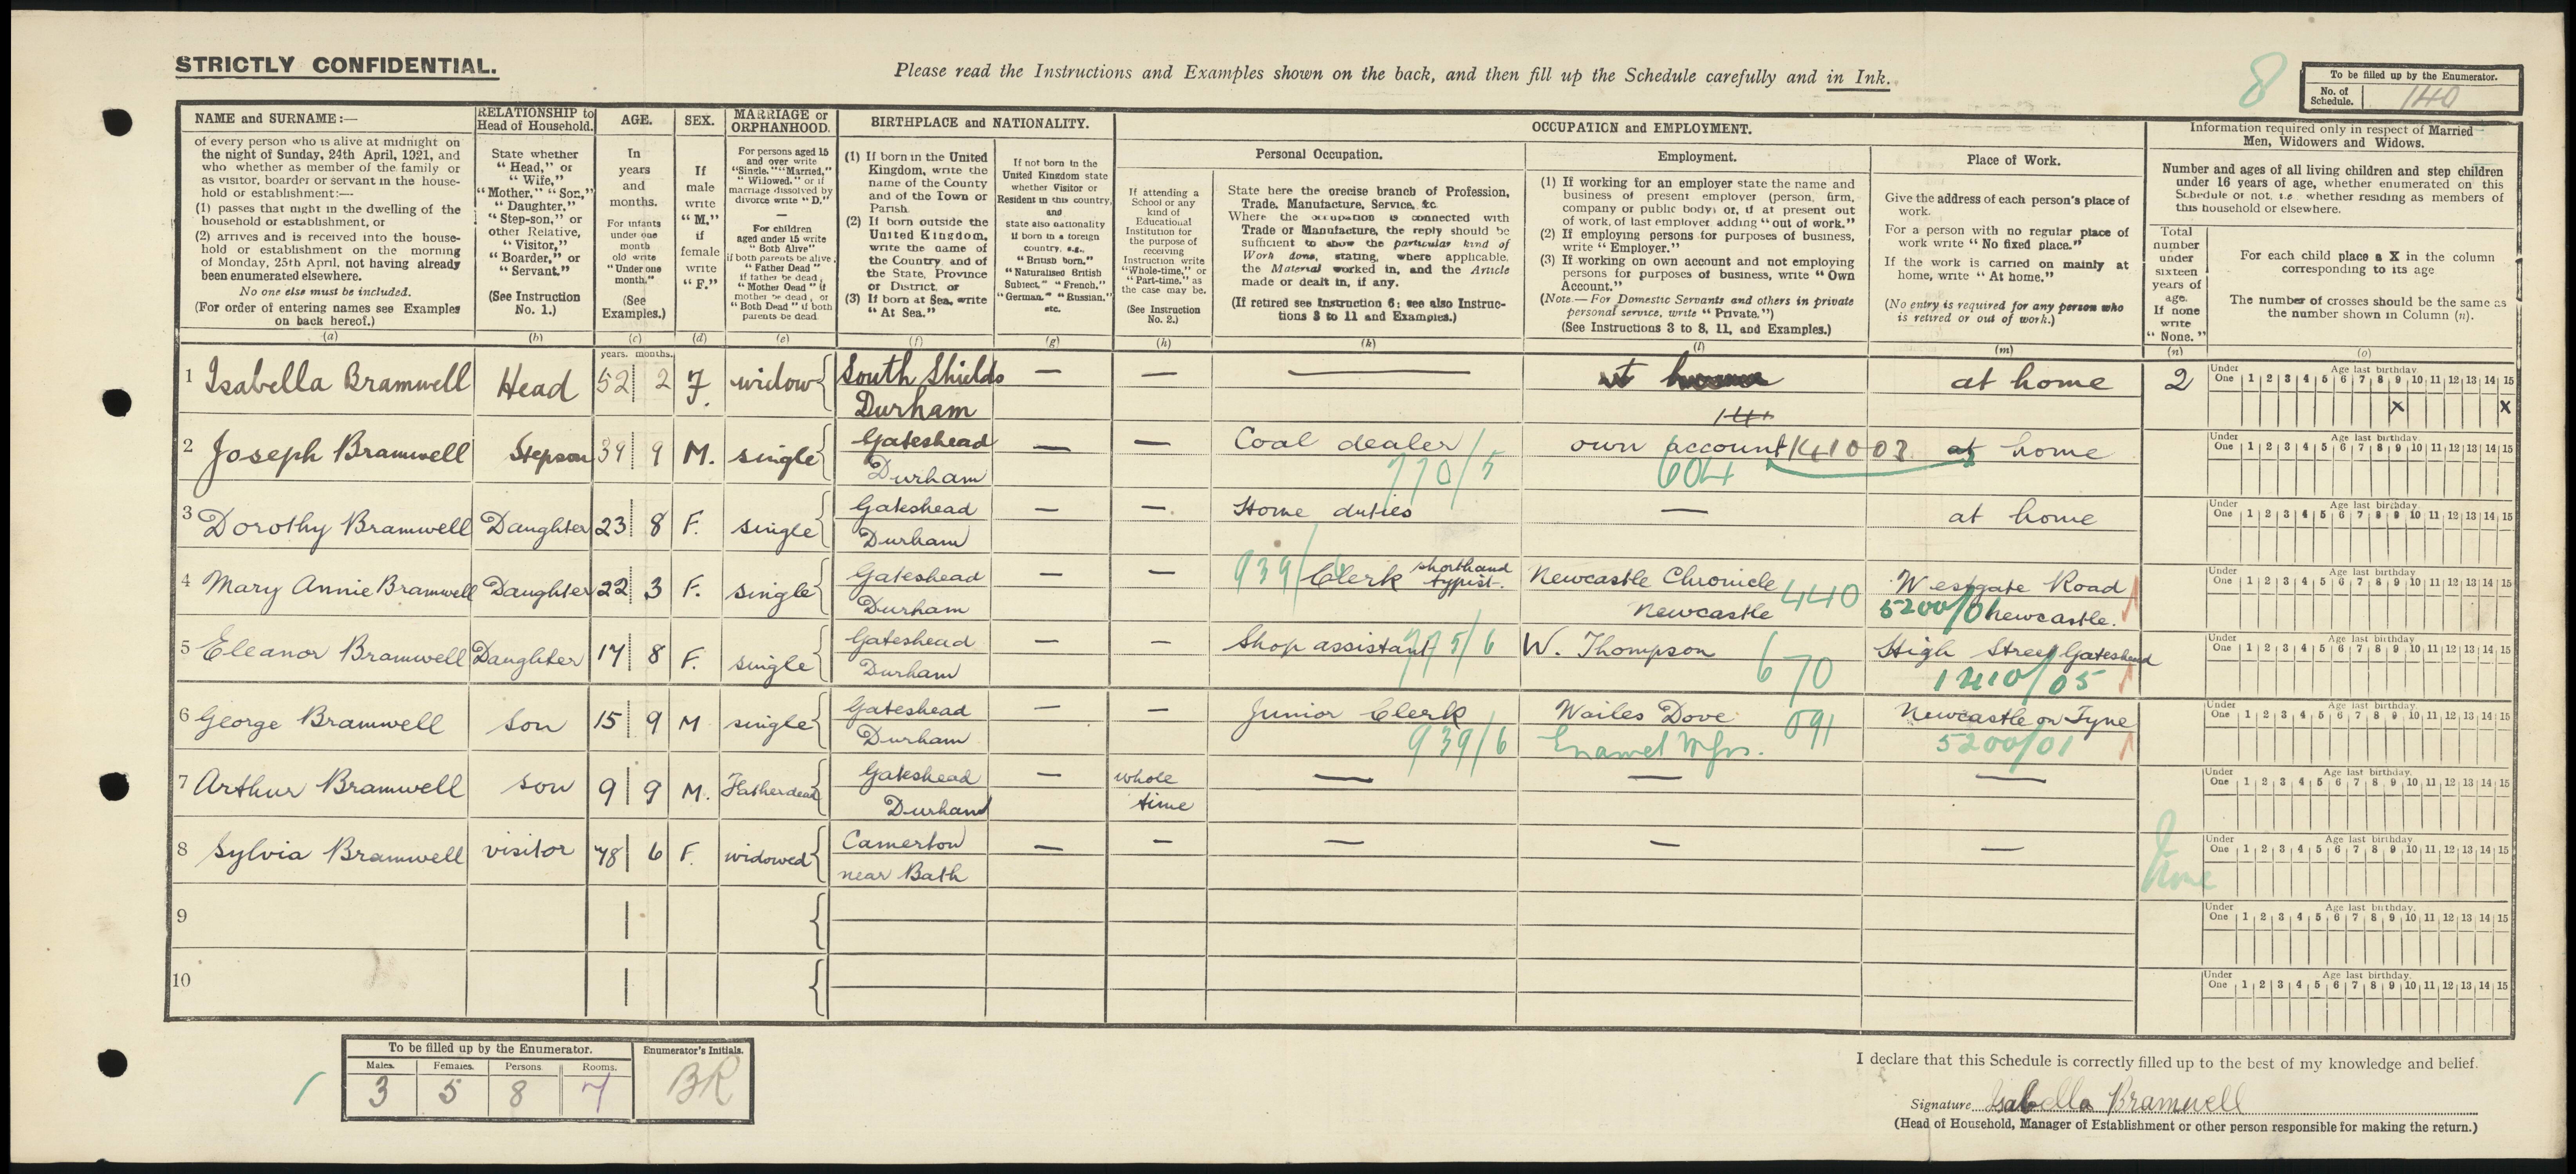 STRICTLY CONFIDENTIAL.
Please read the Instructions and Examples shown on the back, and then fill up the Schedule carefully and in Ink.
8
To be filled up by the Enumerator.
No. of Schedule. 140
NAME and SURNAME:—
of every person who is alive at midnight on
the night of Sunday, 24th April, 1921, and
who whether as member of the family or
as visitor, boarder or servant in the house-
hold or establishment:—
(1) passes that night in the dwelling of the
household or establishment, or
(2) arrives and is received into the house-
hold or establishment on the morning
of Monday, 25th April, not having already
been enumerated elsewhere.
No one else must be included.
(For order of entering names see Examples
on back hereof.)
(a)
RELATIONSHIP to
Head of Household.
State whether
"Head," or
"Wife,"
"Mother," "Son,"
"Daughter,"
"Step-son," or
other Relative,
"Visitor,"
"Boarder," or
"Servant."
(See Instruction
No. 1.)
(b)
AGE.
In
years
and
months.
For infants
under one
month
old write
"Under one
month."
(See
Examples.)
(c)
SEX.
If
male
write
"M."
if
female
write
"F."
(d)
MARRIAGE or
ORPHANHOOD.
For persons aged 15
and over write
"Single," "Married,"
"Widowed," or if
marriage dissolved by
divorce write "D."
—
For children
aged under 15 write
"Both Alive"
if both parents be alive,
"Father Dead"
if father be dead,
"Mother Dead" if
mother be dead, or
"Both Dead" if both
parents be dead
(e)
BIRTHPLACE and NATIONALITY.
(1) If born in the United
Kingdom, write the
name of the County
and of the Town or
Parish.
(2) If born outside the
United Kingdom,
write the name of
the Country, and of
the State, Province
or District, or
(3) If born at Sea, write
"At Sea."
(f)
If not born in the
United Kingdom state
whether Visitor or
Resident in this country,
and
state also nationality
if born in a foreign
country, e.g.,
"British born,"
"Naturalised British
Subject," "French,"
"German," "Russian,"
etc.
(g)
OCCUPATION and EMPLOYMENT.
If attending a
School or any
kind of
Educational
Institution for
the purpose of
receiving
Instruction write
"Whole-time," or
"Part-time," as
the case may be.
(See Instruction
No. 2.)
(h)
Personal Occupation.
State here the precise branch of Profession,
Trade, Manufacture, Service, &c
Where the occupation is connected with
Trade or Manufacture, the reply should be
sufficient to show the particular kind of
Work done, stating, where applicable,
the Material worked in, and the Article
made or dealt in, if any.
(If retired see Instruction 6; see also Instruc-
tions 3 to 11 and Examples.)
(k)
Employment.
(1) If working for an employer state the name and
business of present employer (person, firm,
company or public body) or, if at present out
of work, of last employer adding "out of work."
(2) If employing persons for purposes of business,
write "Employer."
(3) If working on own account and not employing
persons for purposes of business, write "Own
Account."
(Note.—For Domestic Servants and others in private
personal service, write "Private.")
(See Instructions 3 to 8, 11, and Examples.)
(l)
Place of Work.
Give the address of each person's place of
work.
For a person with no regular place of
work write "No fixed place."
If the work is carried on mainly at
home, write "At home."
(No entry is required for any person who
is retired or out of work.)
(m)
Information required only in respect of Married
Men, Widowers and Widows.
Number and ages of all living children and step children
under 16 years of age, whether enumerated on this
Schedule or not, i.e. whether residing as members of
this household or elsewhere.
Total
number
under
sixteen
years of
age.
If none
write
"None."
(n)
For each child place a X in the column
corresponding to its age
The number of crosses should be the same as
the number shown in Column (n).
(o)
years. months.
1 Isabella Bramwell Head 52 2 F. widow South Shields — — — at home 2
Durham
Under One 1 2 3 4 5 6 7 8 9 10 11 12 13 14 15
Age last birthday
x x
2 Joseph Bramwell Stepson 39 9 M. single Gateshead — — Coal dealer own account 141003 at home
Durham 770/5 604
Under One 1 2 3 4 5 6 7 8 9 10 11 12 13 14 15
Age last birthday.
3 Dorothy Bramwell Daughter 23 8 F. single Gateshead — — Home duties — at home
Durham
Under One 1 2 3 4 5 6 7 8 9 10 11 12 13 14 15
Age last birthday.
4 Mary Annie Bramwell Daughter 22 3 F. single Gateshead — — 939/6 Clerk shorthand typist. Newcastle Chronicle 440 Westgate Road
Durham Newcastle 5200/01 Newcastle.
Under One 1 2 3 4 5 6 7 8 9 10 11 12 13 14 15
Age last birthday.
5 Eleanor Bramwell Daughter 17 8 F. single Gateshead — — Shop assistant 775/6 W. Thompson 670 High Street Gateshead
Durham 1410/05
Under One 1 2 3 4 5 6 7 8 9 10 11 12 13 14 15
Age last birthday.
6 George Bramwell Son 15 9 M single Gateshead — — Junior Clerk Wailes Dove 091 Newcastle on Tyne
Durham 939/6 Enamel Mfrs. 5200/01
Under One 1 2 3 4 5 6 7 8 9 10 11 12 13 14 15
Age last birthday.
7 Arthur Bramwell son 9 9 M. Father dead Gateshead — whole — — —
Durham time
Under One 1 2 3 4 5 6 7 8 9 10 11 12 13 14 15
Age last birthday.
8 Sylvia Bramwell visitor 78 6 F. widowed Camerton — — — — — None
near Bath
Under One 1 2 3 4 5 6 7 8 9 10 11 12 13 14 15
Age last birthday.
9
Under One 1 2 3 4 5 6 7 8 9 10 11 12 13 14 15
Age last birthday.
10
Under One 1 2 3 4 5 6 7 8 9 10 11 12 13 14 15
Age last birthday.
To be filled up by the Enumerator.
Males. Females. Persons. Rooms.
3 5 8 7
Enumerator's Initials.
BR
I declare that this Schedule is correctly filled up to the best of my knowledge and belief.
Signature Isabella Bramwell
(Head of Household, Manager of Establishment or other person responsible for making the return.)